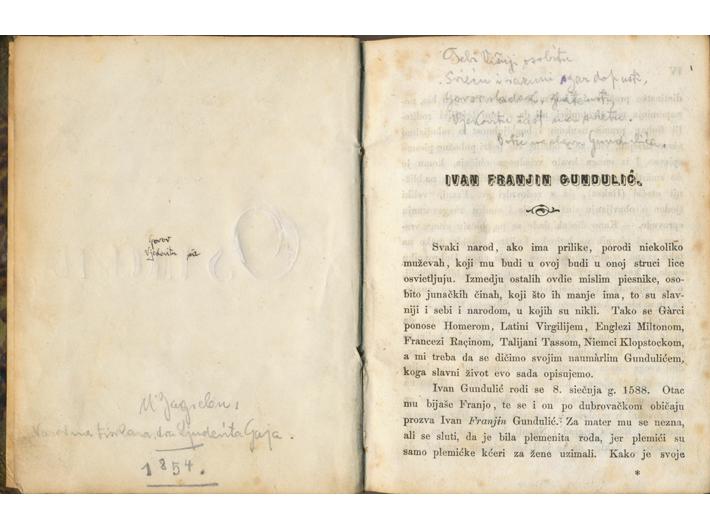 U Zagrebu,
Narodna tiskarna dra Ljudevita Gaja.
1854.
Tebi Višnji osobitu
IVAN FRANJIN GUNDULIĆ.
Svaki narod, ako ima prilike, porodi niekoliko
muževah, koji mu budi u ovoj budi u onoj struci lice
osvietljuju. Izmedju ostalih ovdie mislim piesnike, oso-
bito junačkih činah, koji što ih manje ima, to su slav-
niji i sebi i narodom, u kojih su nikli. Tako se Gàrci
ponose Homerom, Latini Virgilijem, Englezi Miltonom,
Francezi Raçinom, Talijani Tassom, Niemci Klopstockom,
a mi treba da se dičimo svojim naumàrlim Gundulićem,
koga slavni život evo sada opisujemo.
Ivan Gundulić rodi se 8. siečnja g. 1588. Otac
mu bijaše Franjo, te se i on po dubrovačkom običaju
prozva Ivan Franjin Gundulić. Za mater mu se nezna,
ali se sluti, da je bila plemenita roda, jer plemići su
samo plemičke kćeri za žene uzimali. Kako je svoje
*